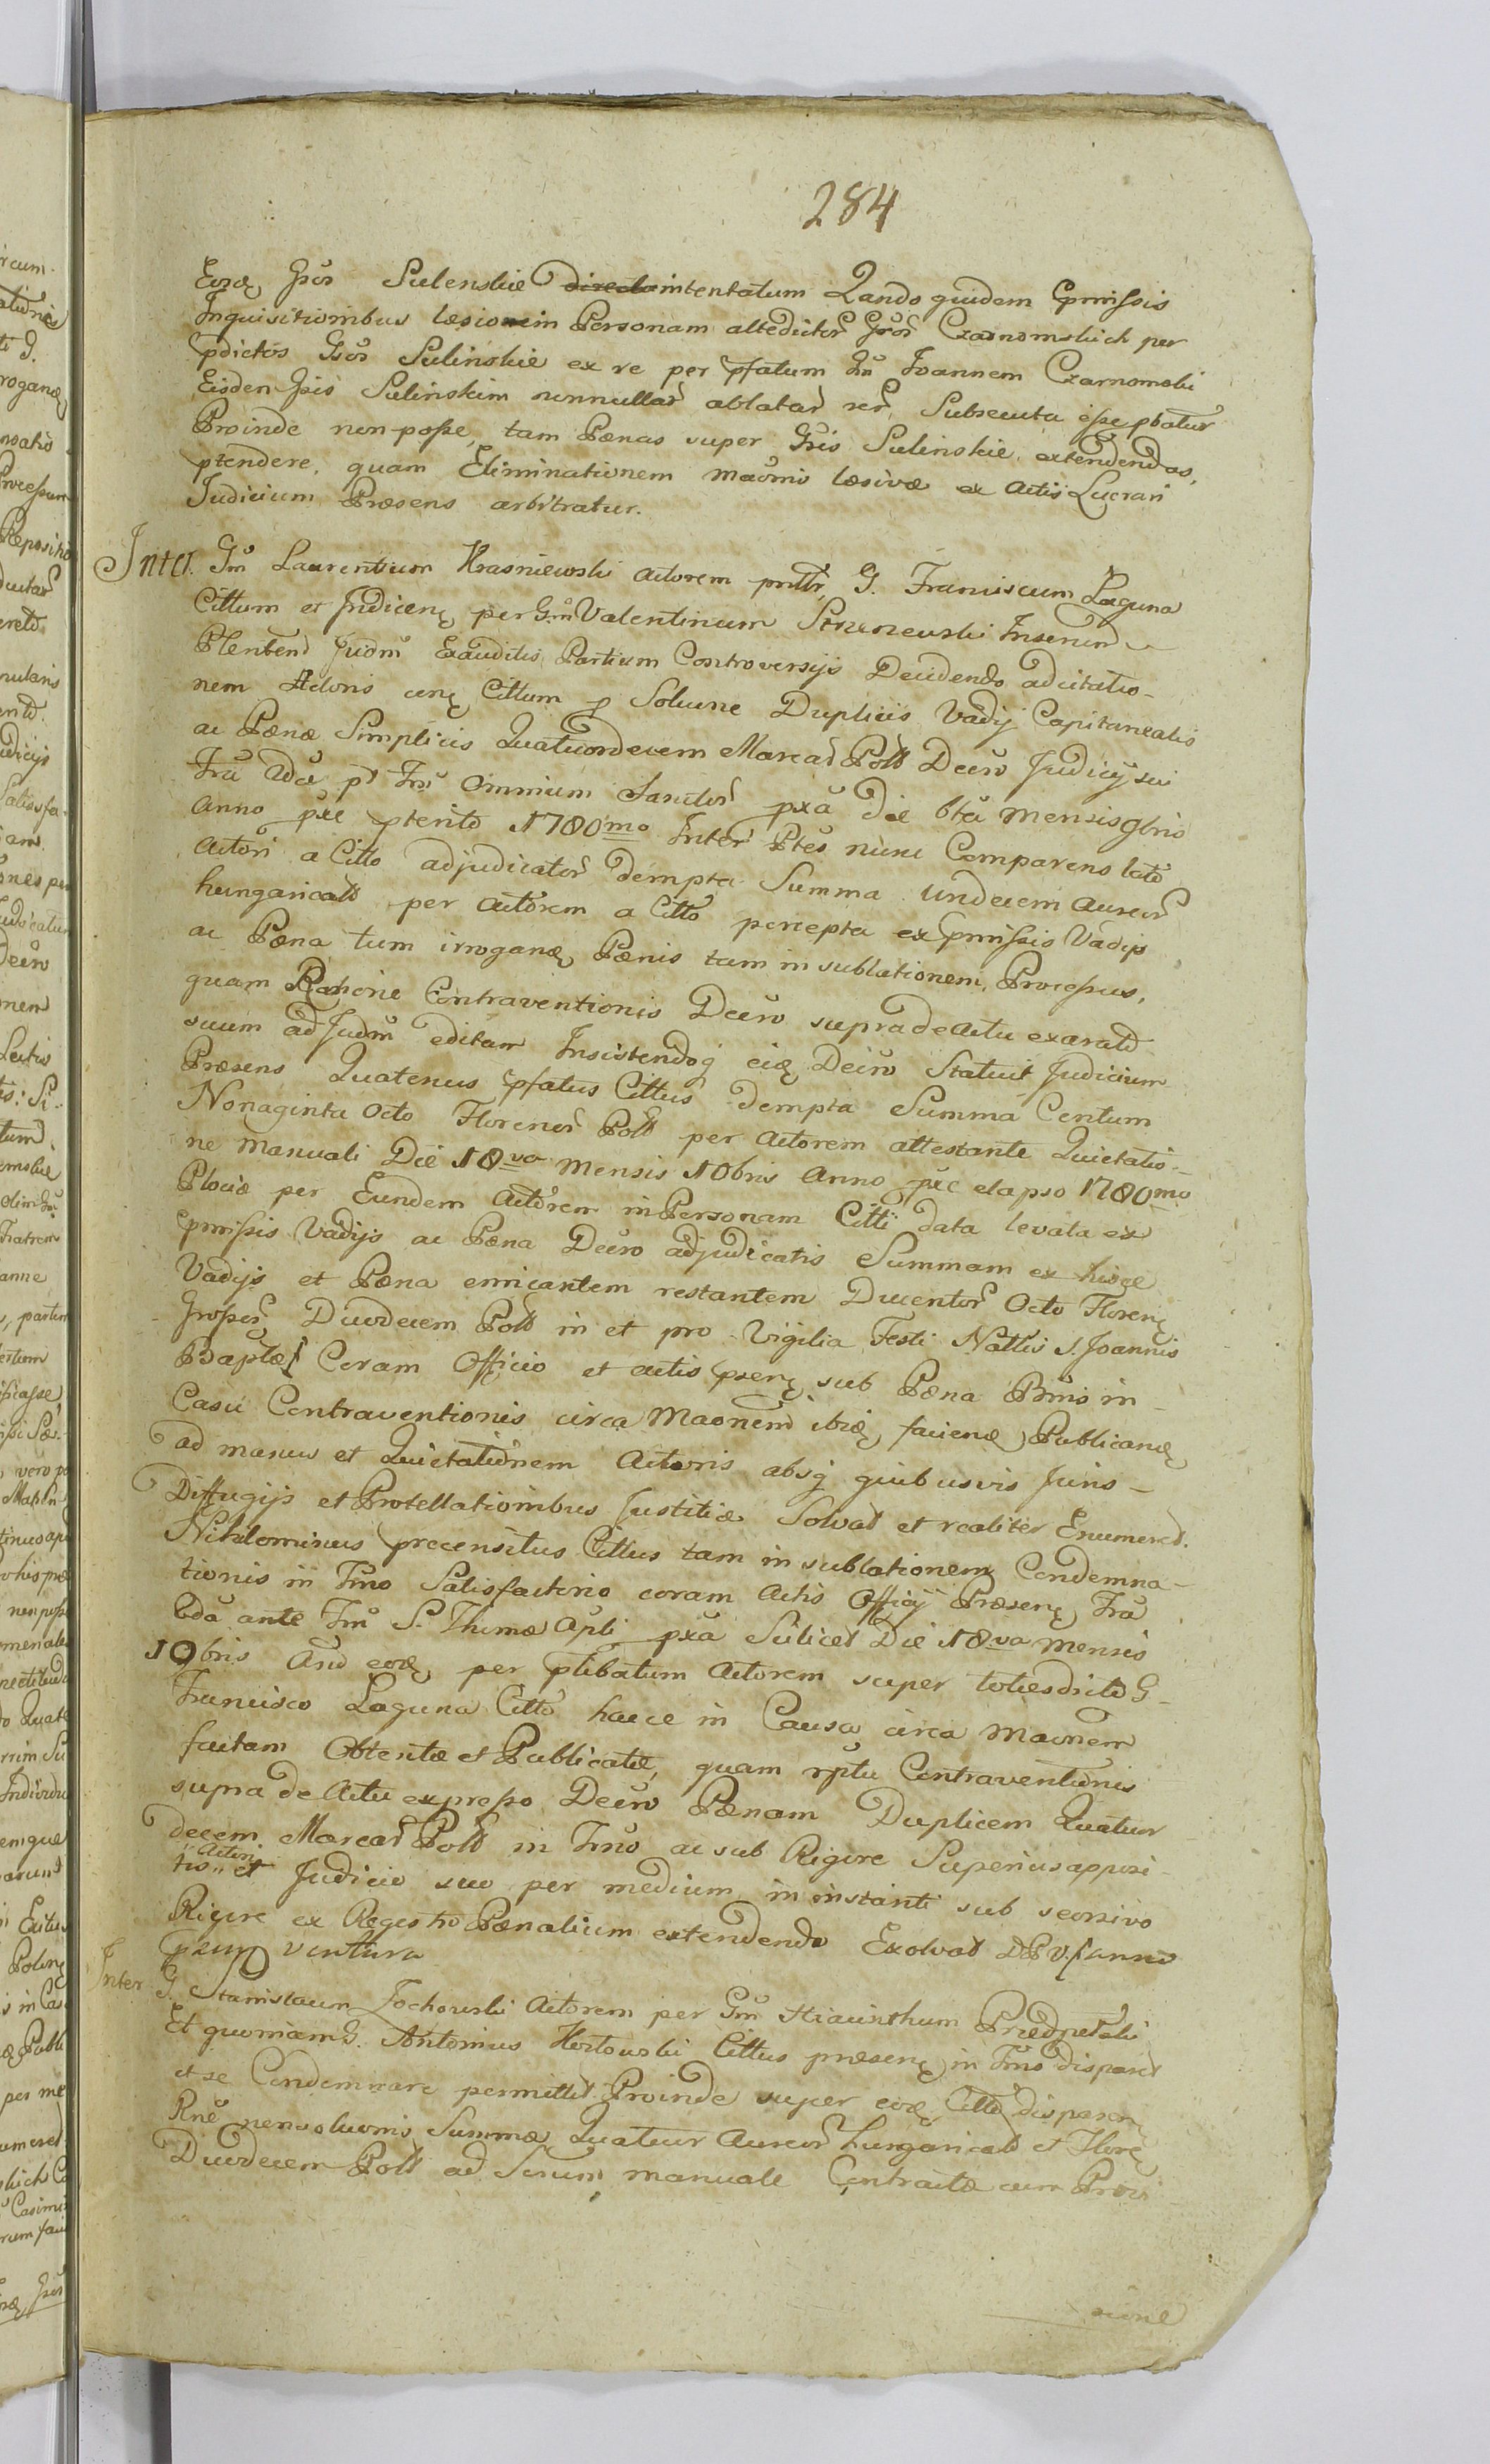 284
Eorę Gsos Sulenskie directo intentatum Qando quidem exprmissis
Inquisitionibus læsionem in Personam altedictor Gsor Czarnomskich per
pdictos Gsos Sulinskie ex re per pfatum Gm Joannem Czarnomski
Eisdem Gsis Sulinskim nonnullar ablatar rer, Subsecuta esse pbatur
Proinde non posse, tam Pœnas super Gsis Sulinskie extendendas,
ptendere, quam Eliminationem maonis læsivæ ex Actis Lucrari
Judicium Præsens arbitratur.
Inter Gm Laurentium Krasniewski Actorem pntlr, G. Franciscum Laguna
Cittum et Judicenę per Gm Valentinum Inserend
Plenbend Judm Exauditis Partium Controversijs Decidendo ad citatio-
nem Actoris cenę Cittum p Solvne Duplicis Vadij Capitanealis
ac Pœnæ Simplicis Quatuordecem Marcar Poll Decro Judicij sui
Fra 2da pt Fm Omnium Sanctor pxa Die 6ta mensis 9bris
Anno pxe pterito 1780mo Inter Ptes nunc Comparens lato
Actori a Citto adjudicator dempta Summa undecem Aureor
hungaricall per Actorem a Citto percepta ex prmissis Vadijs
ac Pœna tum irroganę Pœnis tam in sublationem Processus,
quam Ratione Contraventionis Decro supra de Actu exarato
suum ad Judm editam Insistendoq eię Decro Statuit Judicium
Præsens Quatenus pfatus Cittus dempta Summa Centum
Nonaginta Octo Florenor Poll per Actorem attestante Quietatio-
ne manuali Die 18va mensis 10bris Anno pxe elapso 1780mo
Plociæ per Eundem Actorem in Personam Citti data levata ex
prmissis Vadijs ac Pœna Decro adjudicatis Summam ex hisce
Vadijs et Pœna emicantem restantem Ducentor Octo Florenę
Grossor Duodecem Poll in et pro Vigilia Festi Nattis S. Joannis
Baptæ Coram Officio et Actis psenę sub Pœna Bnis in
Casu Contraventionis circa Maonem ibię, facienę Publicanę
ad manus et Quietationem Actoris absq quibusvis Juris
Diffugijs et Protellationibus Justitiæ Solvat et realiter Enumeret.
Nihilominus precensitus Cittus tam in sublationem Condemna-
tionis in Fmo Satisfactorio coram Actis Officij Præsenę Fra
2da ante Fm S. Thomæ Apli pxa Scilicet Die 18va mensis
10bris Ano eorę per ptibatum Actorem super totiesdicto G-
Francisco Laguna Citto hacce in Causa circa Maonem
factam Obtentæ et Publicatæ, quam rptu Contraventionis
supra de Actu expresso Decro Pœnam Duplicem Quatuor
decem Marcar Poll in Fmo ac sub Rigore Superius apposi-
tis Actori et Judicio suo per medium in instanti sub seorsivo
Rigore ex Regestro Pœnalium extendendo Exolvat DPV. Janne
psens ventura
Inter G. Stanislaum Zochowski Actorem per Gm Hiacinthum Przedpelski
Et quoniam G. Antonius Hertowski Cittus præsenę in Fmo disparet
et se Condemnare permittit Proinde super eoę Citto disparenę
Rne nonsolvonis Summæ Quatuor Aureor hungaricall et Florę
Duodecem Poll ad Scrum manuale Contractæ cum Provi-
sione